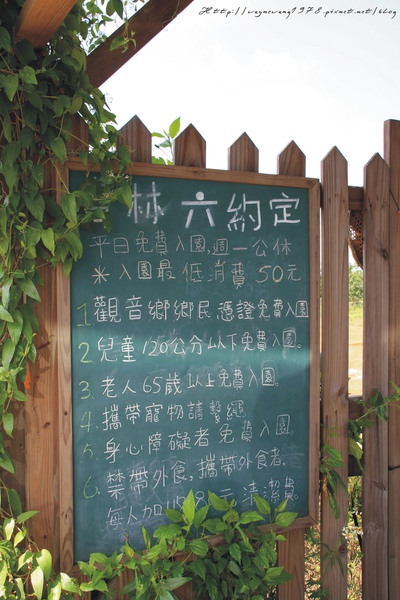 Http://waynewang1978.pixnet.net/blog
林六約定
平日免費入園,週一公休
※入園最低消費50元
1.觀音鄉鄉民憑證免費入園
2.兒童120公分以下免費入園。
3.老人65歲以上免費入園。
4.攜帶寵物請繫繩
5.身心障礙者免費入園
6.禁帶外食,攜帶外食者.
每人加收 元清潔費。